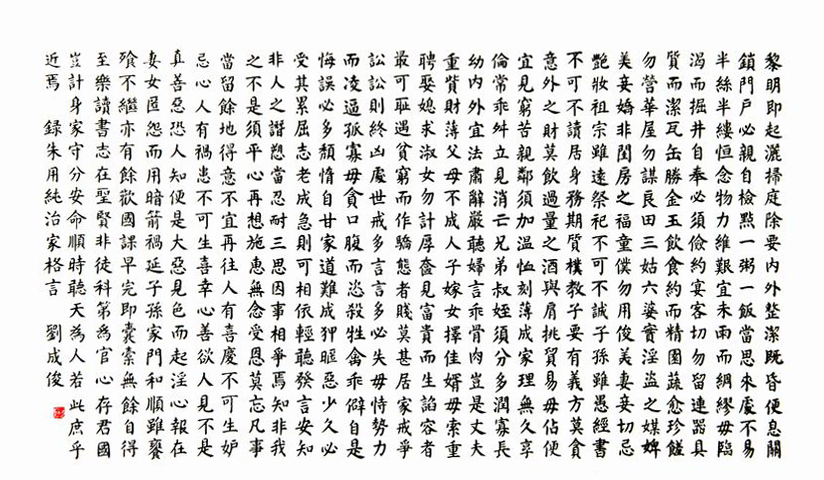 黎明即起灑掃庭除要內外整潔既昏便息關
鎖門戶必親自檢點一粥一飯當思來處不易
半絲半縷恒念物力維艱宜未雨而綢繆毋臨
渴而掘井自奉必須儉約宴客切勿留連器具
質而潔瓦缶勝金玉飲食約而精園蔬愈珍饈
勿營華屋勿謀良田三姑六婆實淫盜之媒婢
美妾嬌非閨房之福童僕勿用俊美妻妾切忌
艷妝祖宗雖遠祭祀不可不誠子孫雖愚經書
不可不讀居身務期質樸教子要有義方莫貪
意外之財莫飲過量之酒與肩挑貿易毋佔便
宜見窮苦親鄰須加温恤刻薄成家理無久享
倫常乖舛立見消亡兄弟叔姪須分多潤寡長
幼內外宜法肅辭嚴聽婦言乖骨肉豈是丈夫
重貲財薄父母不成人子嫁女擇佳婿毋索重
聘娶媳求淑女勿計厚奩見富貴而生諂容者
最可恥遇貧窮而作驕態者賤莫甚居家戒爭
訟訟則終凶處世戒多言言多必失毋恃勢力
而凌逼孤寡毋貪口腹而恣殺牲禽乖僻自是
悔誤必多頹惰自甘家道難成狎暱惡少久必
受其累屈志老成急則可相依輕聽發言安知
非人之譖愬當忍耐三思因事相爭焉知非我
之不是須平心再想施惠無念受恩莫忘凡事
當留餘地得意不宜再往人有喜慶不可生妒
忌心人有禍患不可生喜幸心善欲人見不是
真善惡恐人知便是大惡見色而起淫心報在
妻女匿怨而用暗箭禍延子孫家門和順雖饔
飧不繼亦有餘歡國課早完即囊橐無餘自得
至樂讀書志在聖賢非徒科第為官心存君國
豈計身家守分安命順時聽天為人若此庶乎
近焉 錄朱用純治家格言 劉成俊